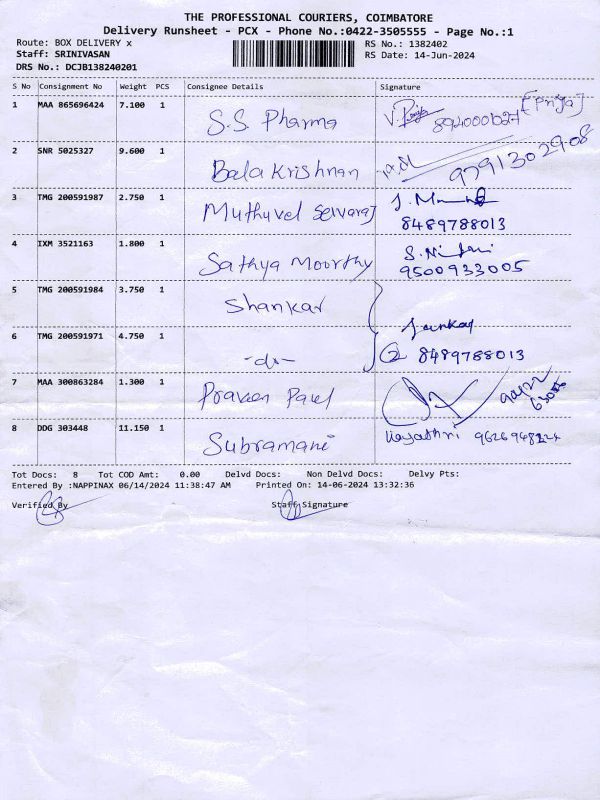 THE PROFESSIONAL COURIERS, COIMBATORE
Delivery Runsheet - PCX - Phone No.:0422-3505555 - Page No.:1
Route: BOX DELIVERY x
RS No.: 1382402
Staff: SRINIVASAN
RS Date: 14-Jun-2024
DRS No.: DCJB138240201
S No Consignment No Weight PCS Consignee Details Signature
1 MAA 865696424 7.100 1 S.S Pharma [Priya]
2 SNR 5025327 9.600 1 Bala Krishnan 9791302908
3 TMG 200591987 2.750 1 Muthuvel Selvaraj
8489788013
4 IXM 3521163 1.800 1 Sathya Moorthy
9500933005
5 TMG 200591984 3.750 1 Shankar
6 TMG 200591971 4.750 1 -do-
② 8489788013
7 MAA 300863284 1.300 1 Praveen Paul
8 DDG 303448 11.150 1 Subramani
Tot Docs: 8 Tot COD Amt: 0.00 Delvd Docs: Non Delvd Docs: Delvy Pts:
Entered By :NAPPINAX 06/14/2024 11:38:47 AM Printed On: 14-06-2024 13:32:36
Verified By Staff Signature